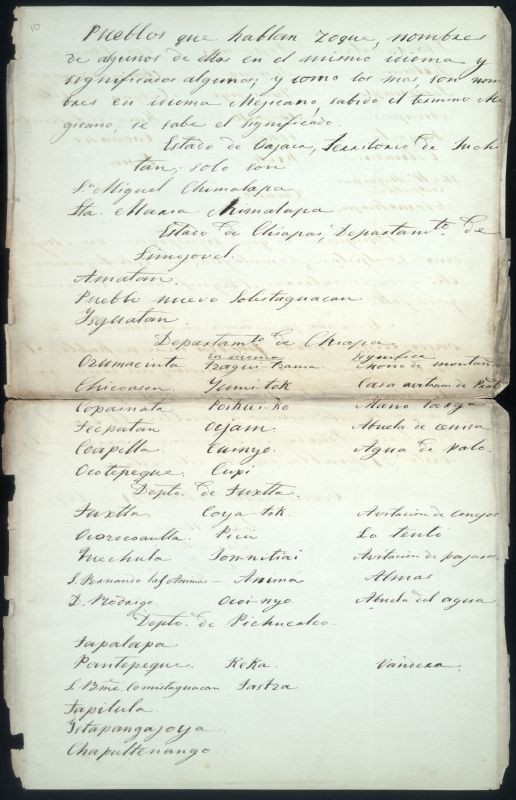 10
Pueblos que hablan Zoque, nombres
de algunos de ellos en el mismo idioma y
significados algunos; y como los mas son nom
bres en idioma Mejicano, sabido el termino Me
gicano, se sabe el significado.
Estado de Oajaca, territorio de Juchi
tan; solo son
Sn. Miguel Chimalapa
Sta. Maria Chimalapa
Estado de Chiapas, Departamto. de
Simojovel.
Amatan.
Pueblo nuevo Solistaguacan
Isguatan
Departamto. de Chiapa
en idioma significa
Ozumacinta Mono de montaña
Chicoasen Yumi-tok Casa
Copainala Mano larga
Tecpatan Ocjam Abuela de ceniza
Coapilla Cumyo Agua de palo.
Ocotepeque. Cupi
Depto. de Tuxtla.
Tuxtla. Coya-tok. Avitacion de conejos
Ocozocoautla. Pici Lo tento
Quechula Avitacion de pajaros.
S. Fernando las Animas — Animá Almas.
D. Rodrigo. Ocoi-nyo. Abuela del agua.
Depto. de Pichucalco.
Tapalapa
Pantepeque. Keka. vandera.
S. Bme. Comistaguacan Tastza
Tapilula.
Istapangajoya.
Chapultenango.